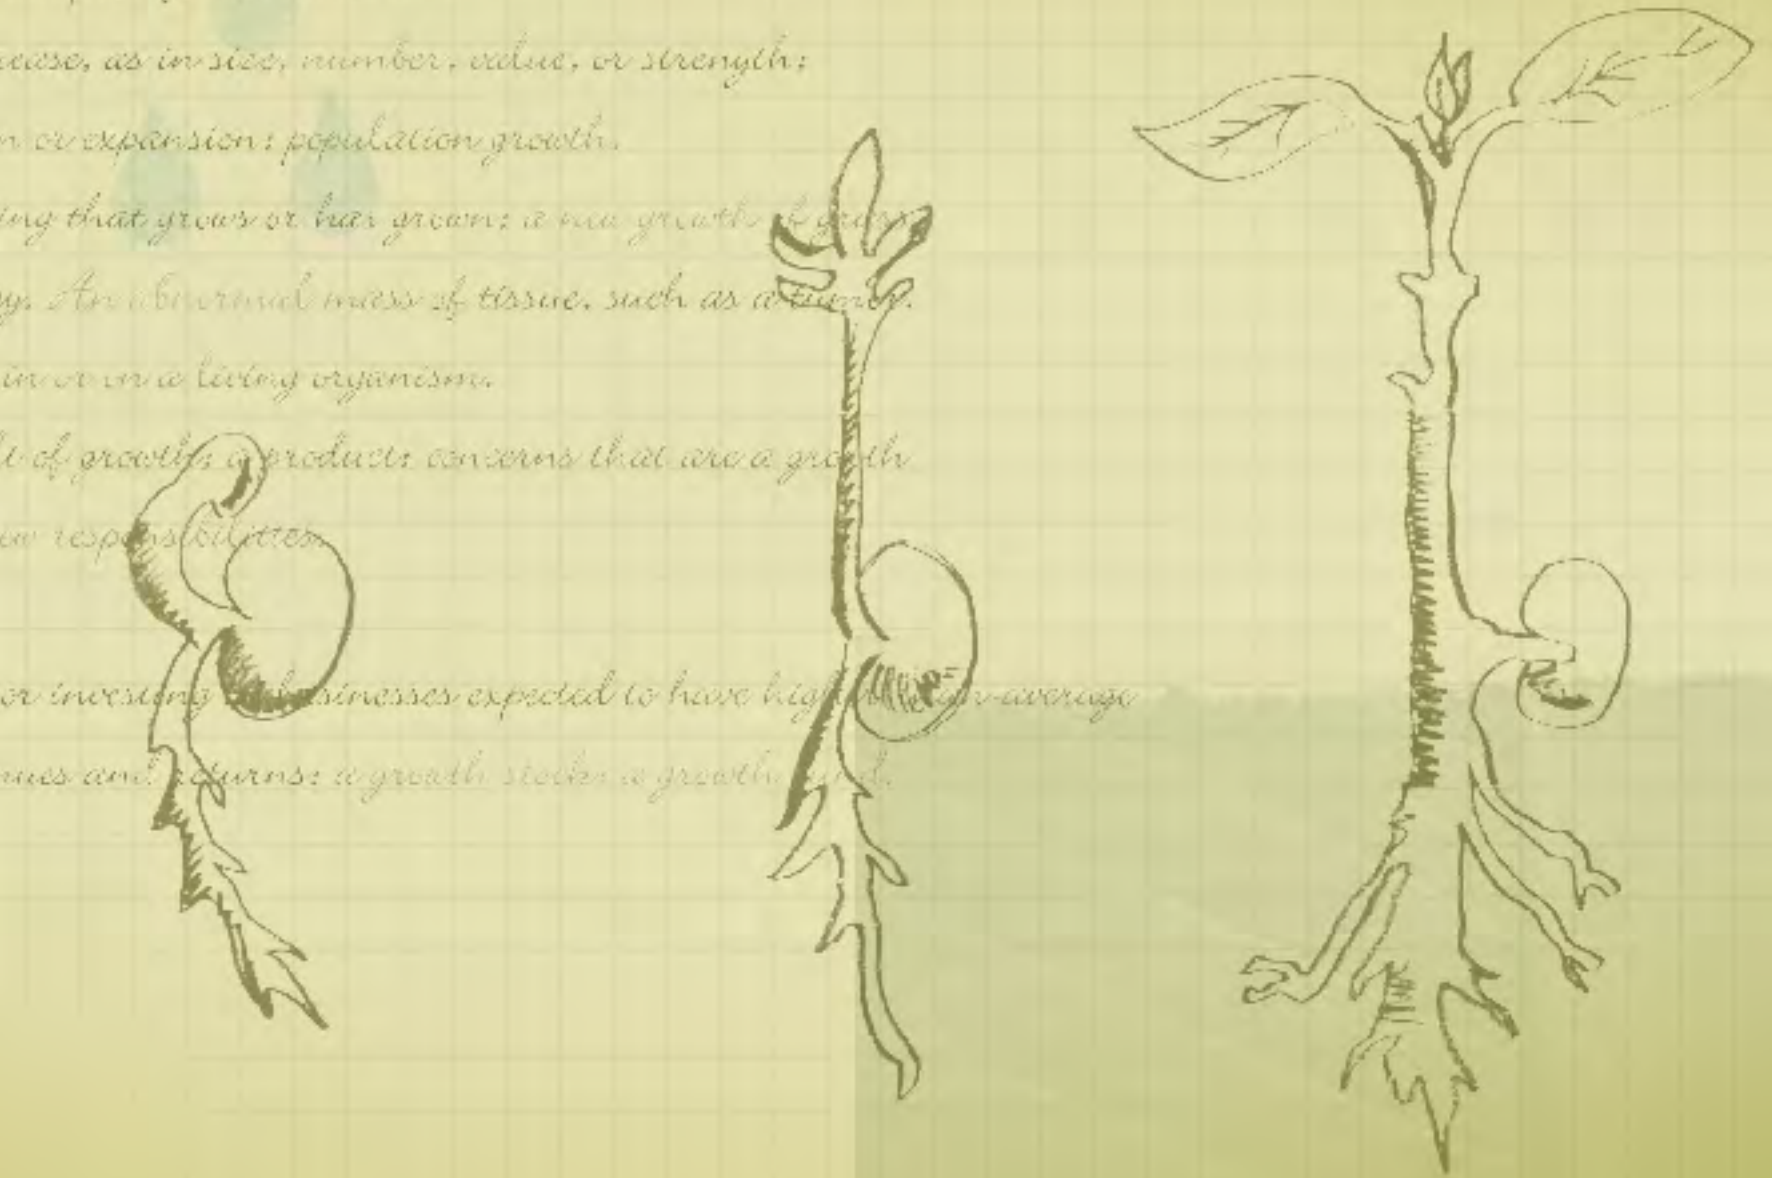 ease, as in size, number, value, or strength:
n or expansion: population growth.
ing that grows or has grown: a new growth of grass.
y. An abnormal mass of tissue, such as a tumor.
in or on a living organism.
of growth; a product: concerns that are a growth
ew responsibilities.
or investing businesses expected to have average
nues and returns: a growth stock; a growth fund.